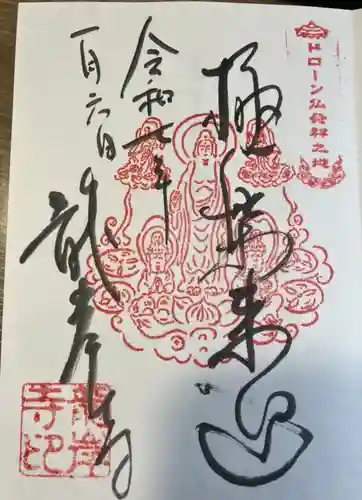 ドローン仏発祥之地
極楽来迎
令和七年
一月六日
龍岸寺
龍岸寺印